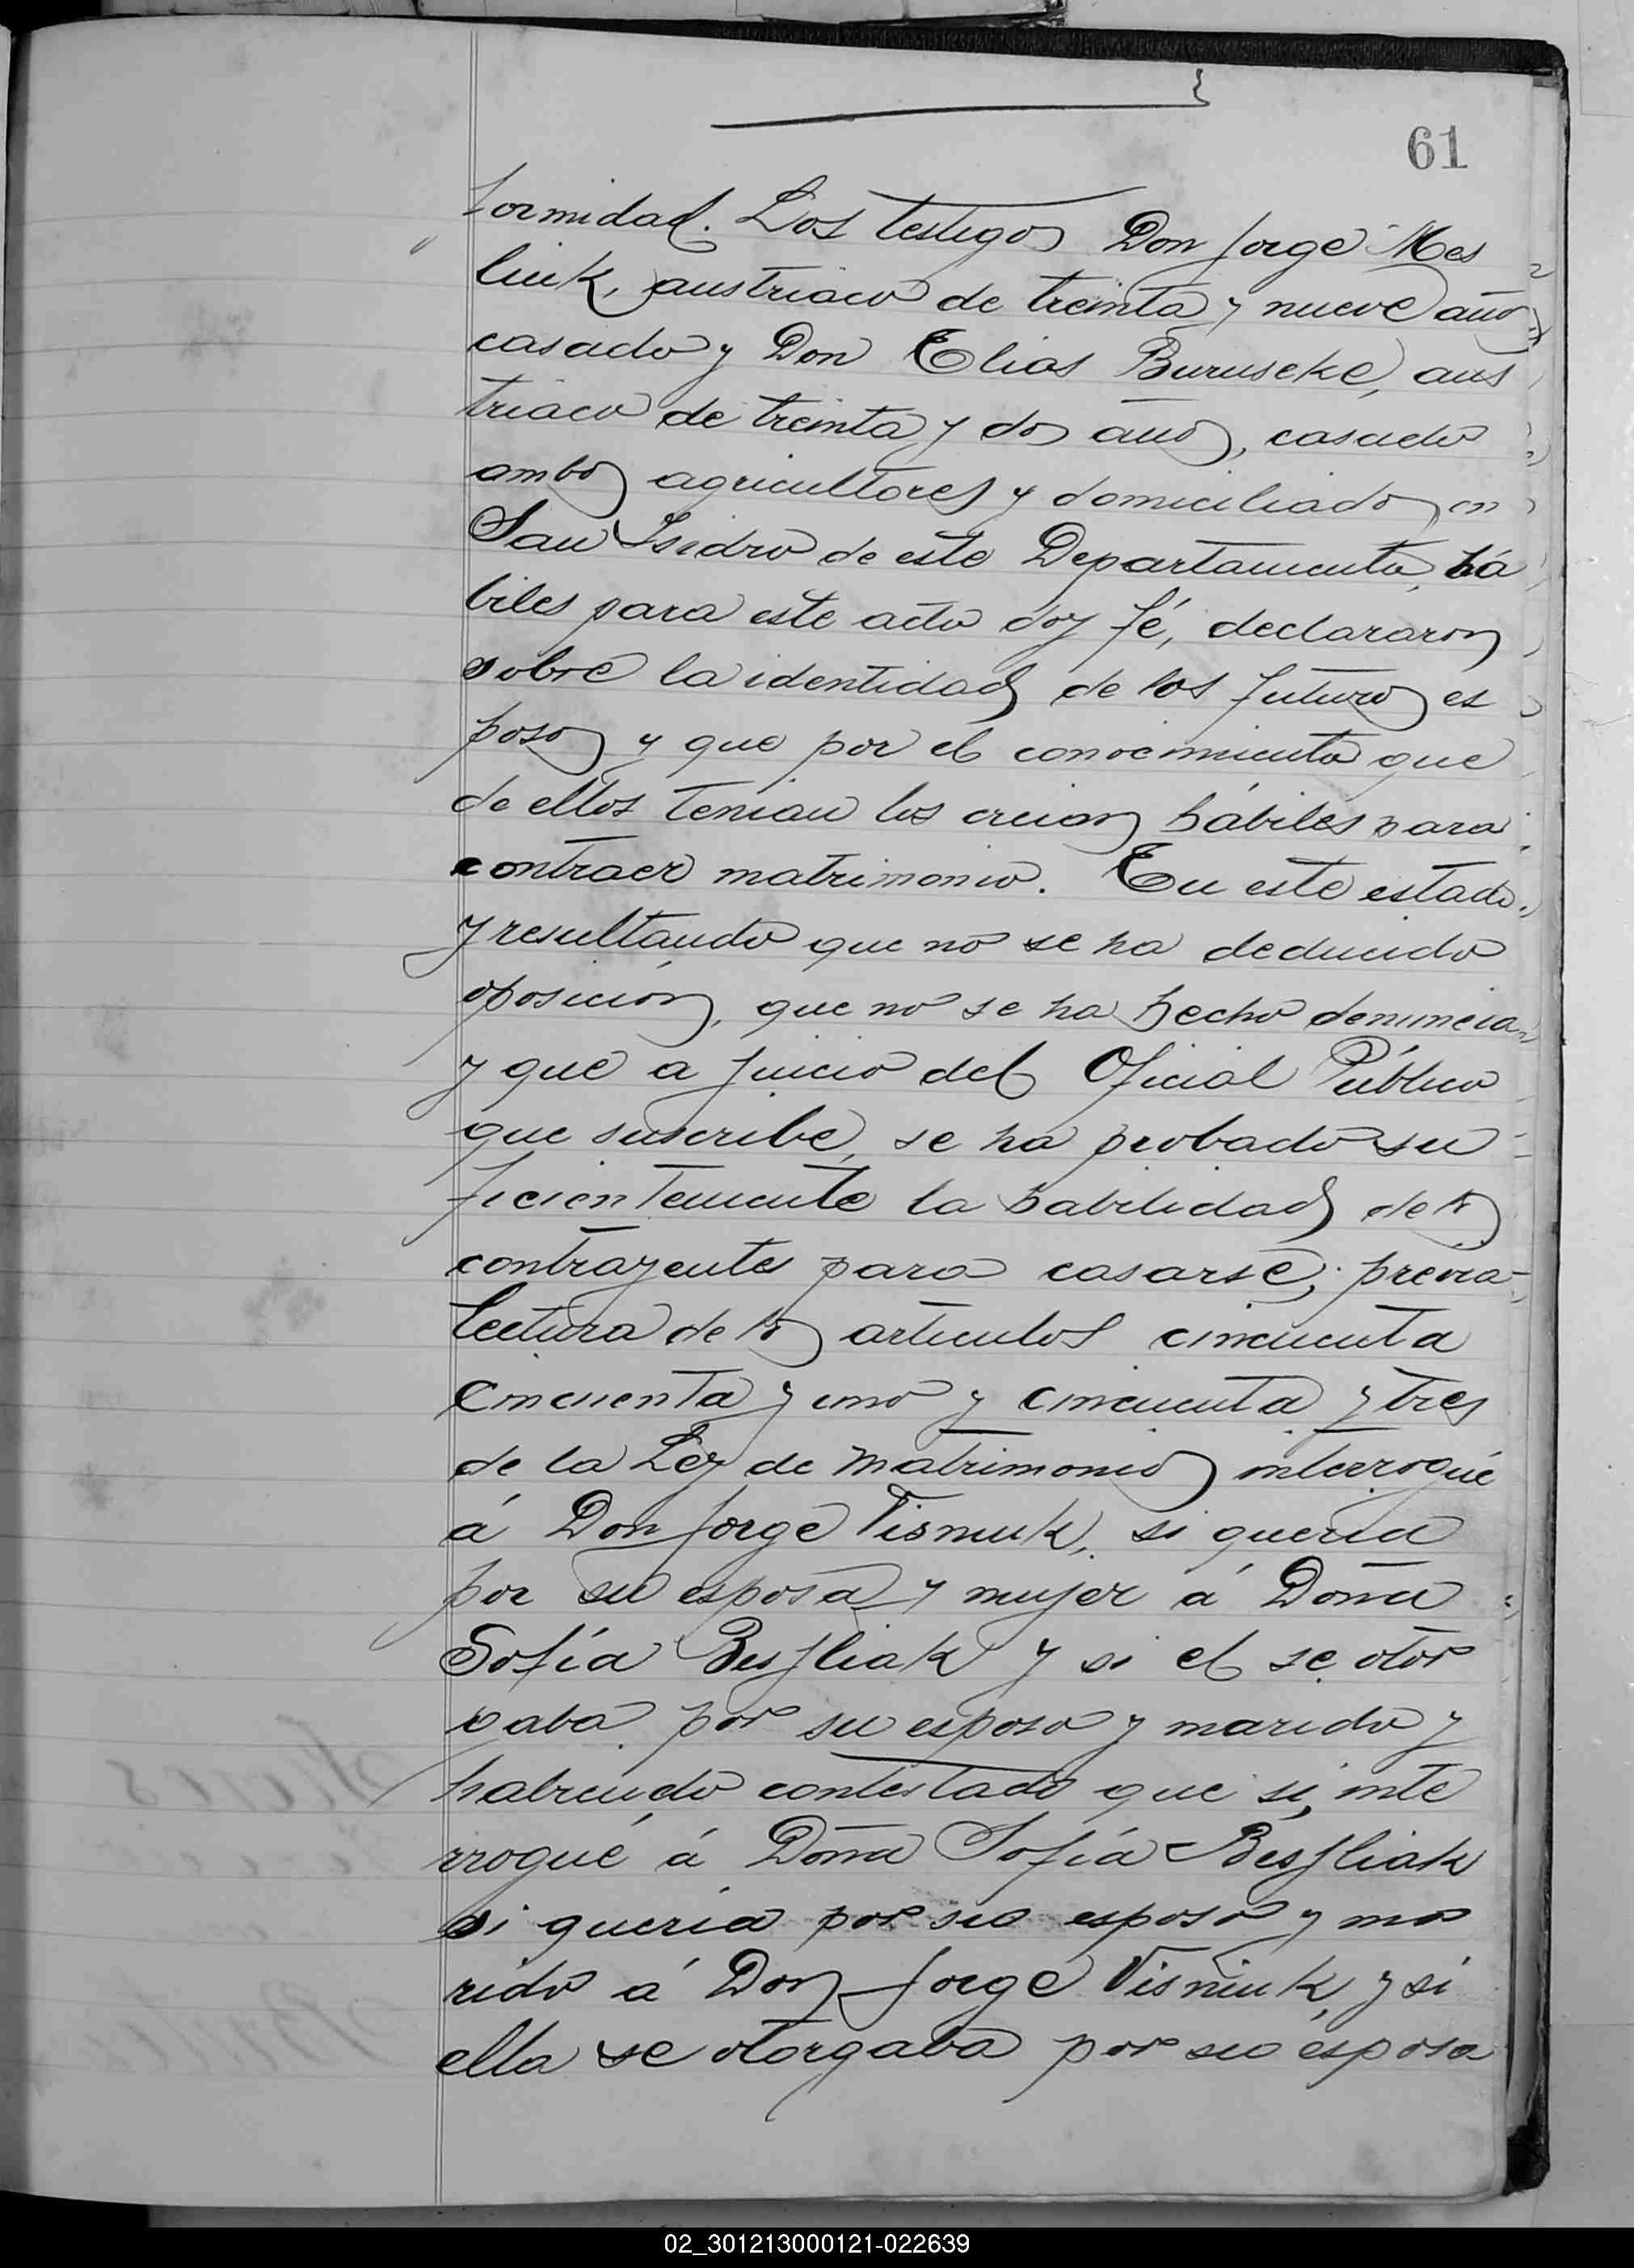 61
formidad. Los testigos Don Jorge Mes
liuk, austriaco de treinta y nueve años
casado y Don Elias Buruseke, aus
triaco de treinta y dos años, casado
ambos agricultores y domiciliados en
San Isidro de este Departamento, há
biles para este acto doy fé, declararon
sobre la identidad de los futuros es
posos y que por el conocimiento que
de ellos tenian los creian hábiles para
contraer matrimonio. En este estado
y resultando que no se ha deducido
oposición, que no se ha hecho denuncia
y que a juicio del Oficial Público
que suscribe, se ha probado su
ficientemente la habilidad de los
contrayentes para casarse; previa
lectura de los articulos cincuenta
cincuenta y uno y cincuenta y tres
de la Ley de matrimonio interrogué
á Don Jorge Visniuk, si queria
por su esposa y mujer á Doña
Sofía Besfliak y si el se otor
gaba por su esposo y marido y
habiendo contestado que si, inte
rrogué á Doña Sofía Besfliak
si queria por su esposo y ma
rido á Don Jorge Visniuk, y si
ella se otorgaba por su esposa
02_301213000121-022639